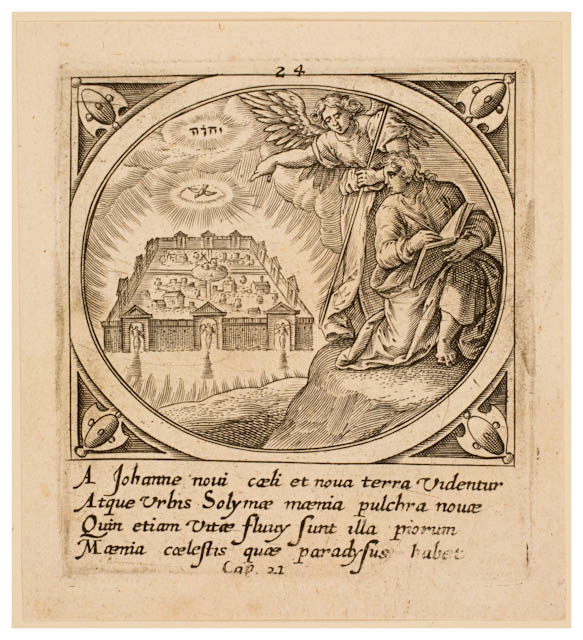 24
יהוה
A Johanne noui cæli et noua terra Videntur
Atque Vrbis Solymæ mænia pulchra nouæ
Quin etiam Vitæ fluuy sunt illa piorum
Mænia cœlestis quæ paradysus habet
Cap. 21